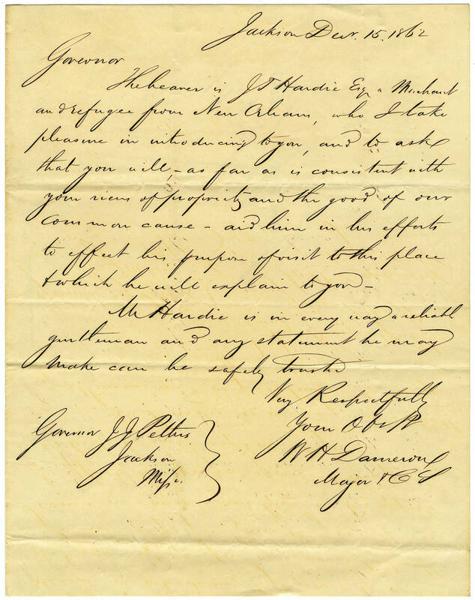 Jackson Decr. 15. 1862
Governor
The bearer is J T Hardie Esq a Merchant
and refugee from New Orleans, who I take
pleasure in introducing to you, and to ask
that you will, - as far as is consistent with
your views of propriety and the good of our
common cause - aid him in his efforts
to effect his purpose of visit to this place
& which he will explain to you -
Mr Hardie is in every way a reliable
gentleman and any statement he may
make can be safely trusted
Very Respectfully
Your Obt Svt
W. H. Dameron
Major & CS
Governor J J Pettus
Jackson
Missi.